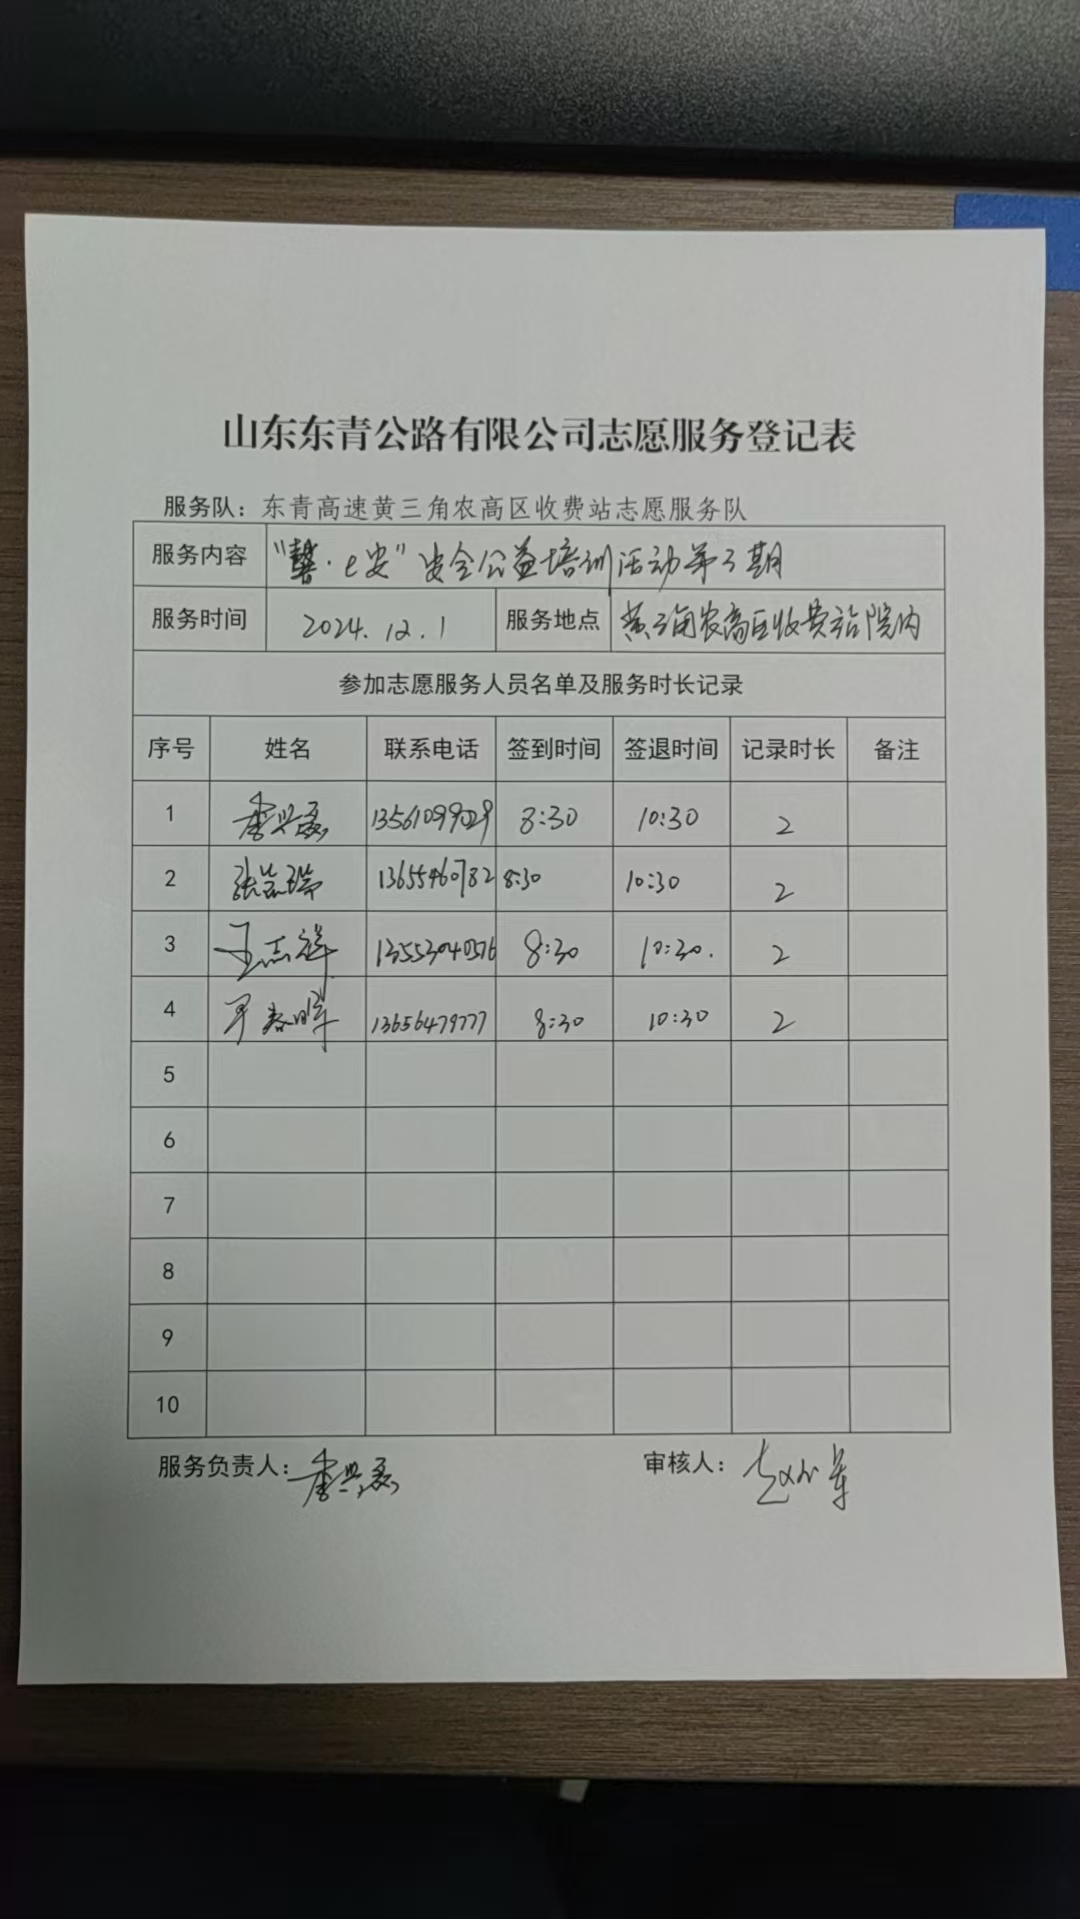 山东东青公路有限公司志愿服务登记表
服务队：东青高速黄三角农高区收费站志愿服务队
服务内容 "·e安"安全公益培训活动第3期
服务时间 2024.12.1 服务地点 黄三角农高区收费站院内
参加志愿服务人员名单及服务时长记录
序号 姓名 联系电话 签到时间 签退时间 记录时长 备注
1 李兴磊 13561099029 8:30 10:30 2
2 张志瑞 13655460782 8:30 10:30 2
3 王志祥 13553040576 8:30 10:30. 2
4 春晖 13656479777 8:30 10:30 2
5
6
7
8
9
10
服务负责人：李兴磊 审核人：赵小军